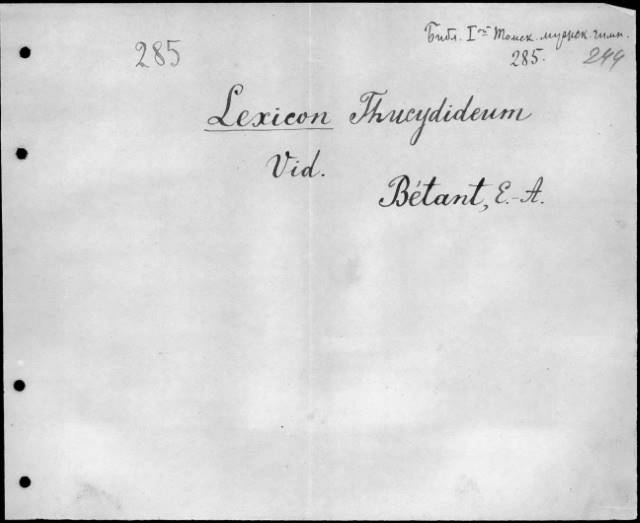 285
Библ. Iой Томск. мужск. гимн.
285. 244
Lexicon Thucydideum
Vid.
Bétant, E.-A.